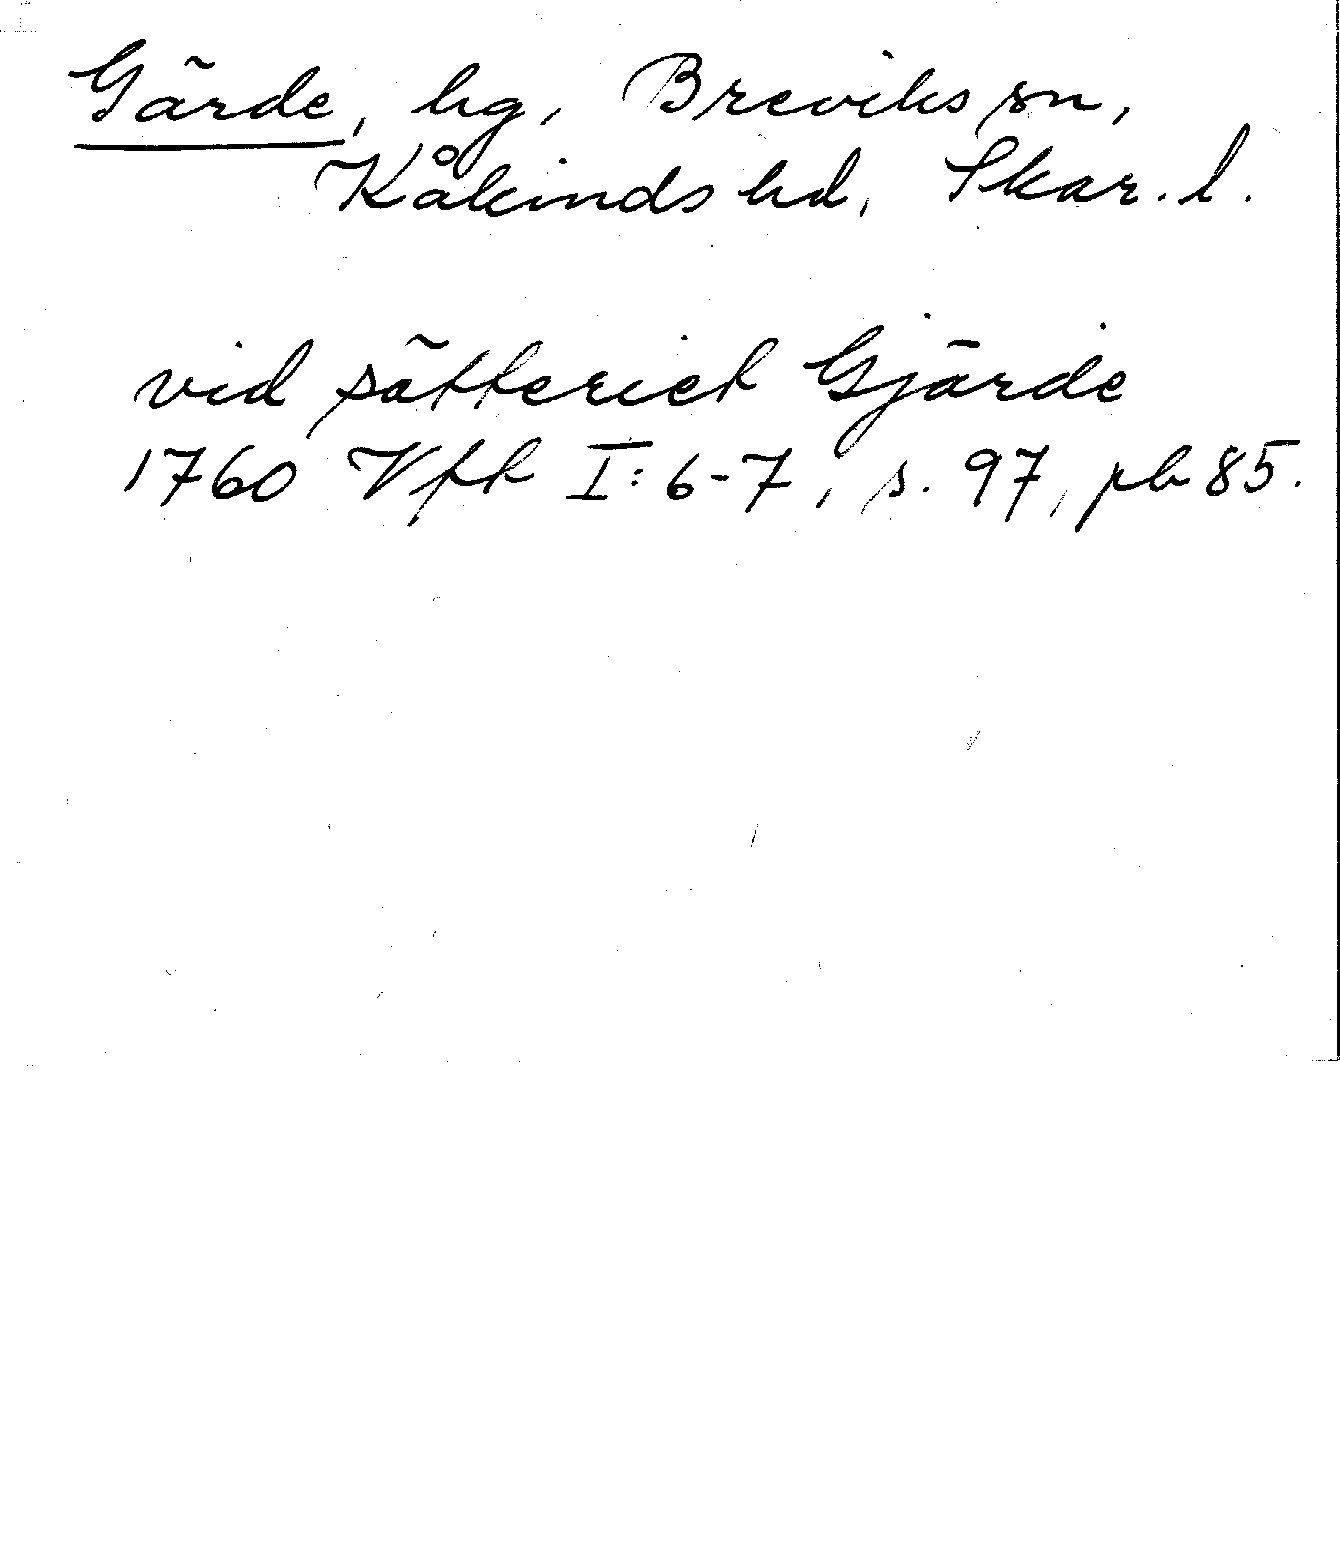 Gärde, hg, Breviks sn,
Kåkinds hd, Skar. l.
vid sätteriet Gjärde
1760 Vfk I: 6-7, s. 97, pb 85.